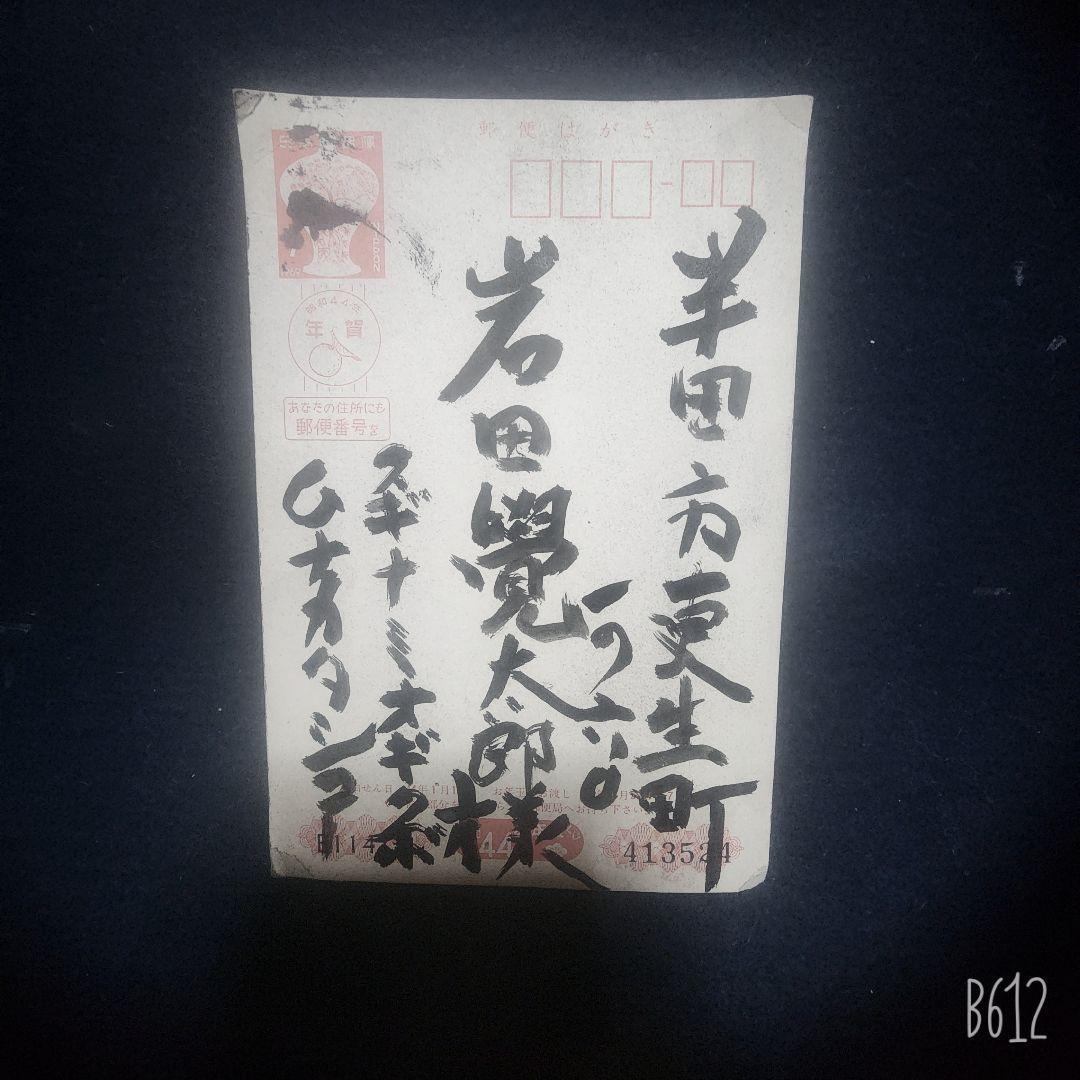 郵便はがき
半田市更生町
一の六
岩田覺太郎様
昭和44年
年賀
あなたの住所にも
郵便番号を
スギナミオギクボ
ムナカタシコー
B114
44
413524
B612